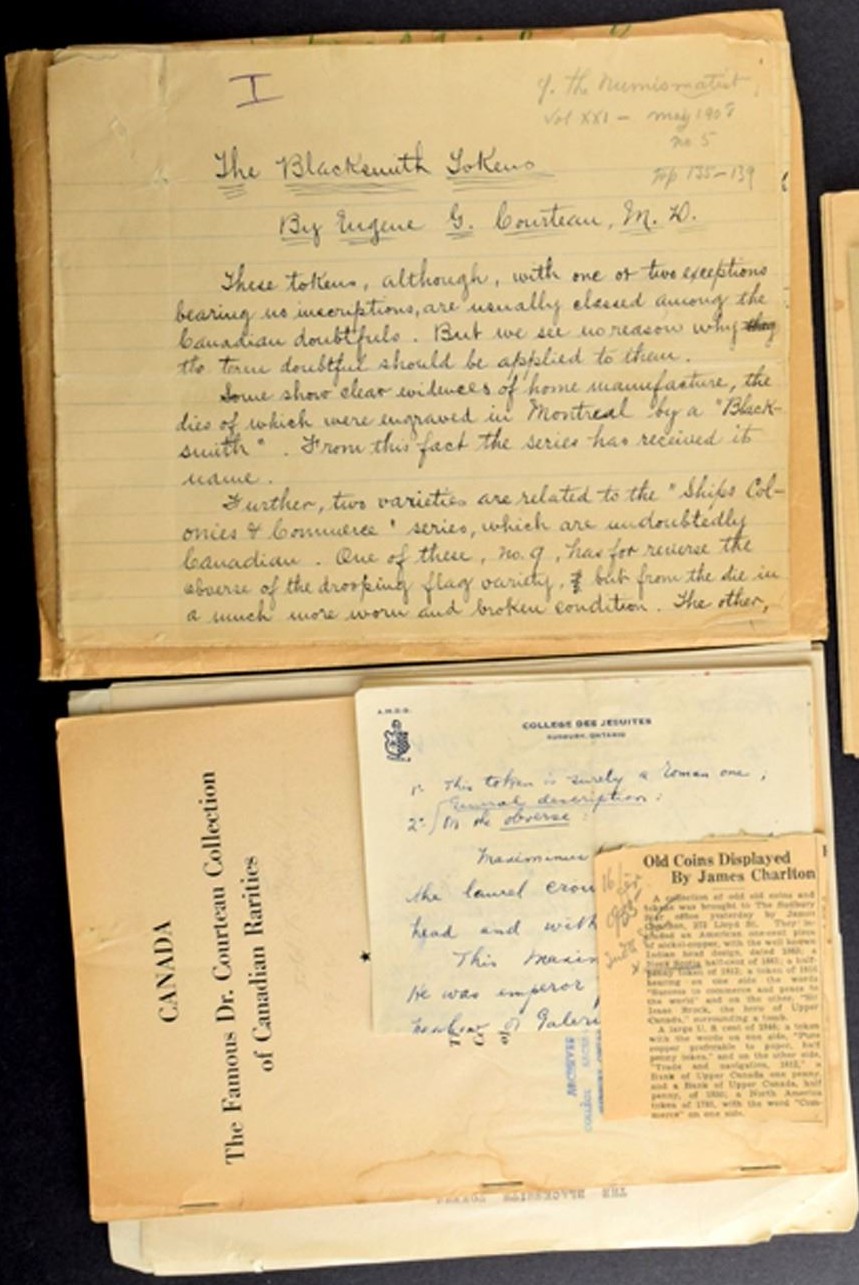 I
Numismatist
Vol XXI - May 1908
no 5
pp 135-139
The Blacksmith Tokens
By Eugene G. Courteau, M. D.
These tokens, although, with one or two exceptions
bearing no inscriptions, are usually classed among the
Canadian doubtfuls. But we see no reason why they
the term doubtful should be applied to them.
Some show clear evidences of home manufacture, the
dies of which were engraved in Montreal by a "Black-
smith". From this fact the series has received it
name.
Further, two varieties are related to the "Ships Col-
onies & Commerce" series, which are undoubtedly
Canadian. One of these, no. 9, has for reverse the
obverse of the drooping flag variety, & but from the die in
a much more worn and broken condition. The other,
CANADA
The Famous Dr. Courteau Collection
of Canadian Rarities
A.M.D.G.
COLLEGE DES JESUITES
SUDBURY, ONTARIO
1- This token is surely a Roman one;
General description:
2- On the obverse:
Maximinus
the laurel crow
head and with
This Maxim
He was emperor
of Galeri
Old Coins Displayed
By James Charlton
A collection of odd old coins and
tokens was brought to The Sudbury
Star office yesterday by James
Charlton, 272 Lloyd St. They in-
cluded an American one-cent piece
of nickel-copper, with the well known
Indian head design, dated 1863; a
Nova Scotia half-cent of 1861; a half-
penny token of 1812; a token of 1816
bearing on one side the words
"Success to commerce and peace to
the world" and on the other, "Sir
Isaac Brock, the hero of Upper
Canada," surrounding a tomb.
A large U. S. cent of 1846; a token
with the words on one side, "Pure
copper preferable to paper, half
penny token," and on the other side,
"Trade and navigation, 1812," a
Bank of Upper Canada one penny,
and a Bank of Upper Canada, half
penny, of 1850; a North America
token of 1781, with the word "Com-
merce" on one side.
THE BLACKSMITH TOKENS